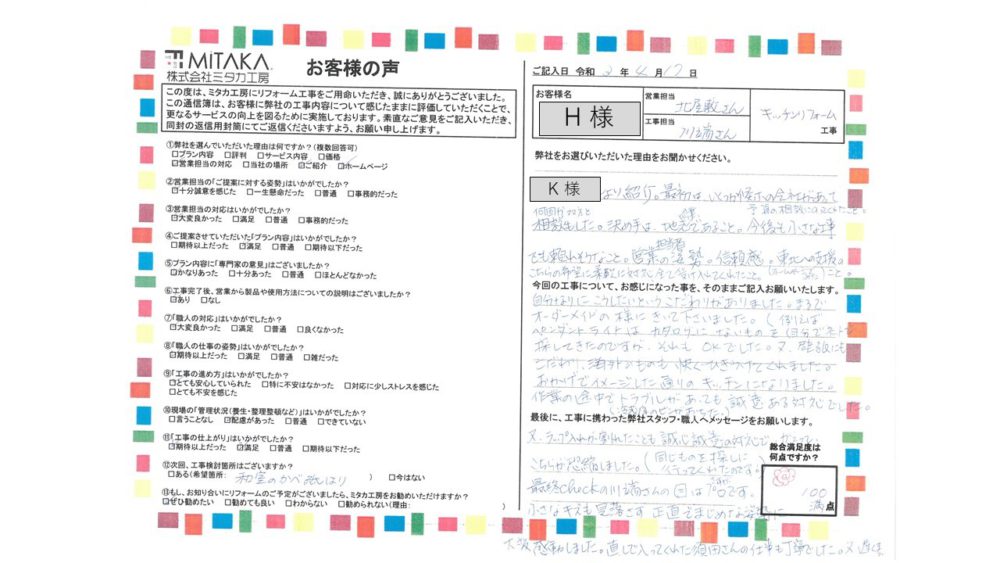 MITAKA
株式会社ミタカ工房
お客様の声
この度は、ミタカ工房にリフォーム工事をご用命いただき、誠にありがとうございました。
この通信簿は、お客様に弊社の工事内容について感じたままに評価していただくことで、
更なるサービスの向上を図るために実施しております。素直なご意見をご記入いただき、
同封の返信用封筒にてご返信くださいますよう、お願い申し上げます。
①弊社を選んでいただいた理由は何ですか?(複数回答可)
□プラン内容 □評判 □サービス内容 □価格
□営業担当の対応 □当社の場所 ☑ご紹介 ☑ホームページ
②営業担当の「ご提案に対する姿勢」はいかがでしたか?
☑十分誠意を感じた □一生懸命だった □普通 □事務的だった
③営業担当の対応はいかがでしたか?
☑大変良かった □満足 □普通 □事務的だった
④ご提案させていただいた「プラン内容」はいかがでしたか?
□期待以上だった ☑満足 □普通 □期待以下だった
⑤プラン内容に「専門家の意見」はございましたか?
☑かなりあった □十分あった □普通 □ほとんどなかった
⑥工事完了後、営業から製品や使用方法についての説明はございましたか?
☑あり □なし
⑦「職人の対応」はいかがでしたか?
☑大変良かった □満足 □普通 □良くなかった
⑧「職人の仕事の姿勢」はいかがでしたか?
☑期待以上だった □満足 □普通 □雑だった
⑨「工事の進め方」はいかがでしたか?
☑とても安心していられた □特に不安はなかった □対応に少しストレスを感じた
□とても不安を感じた
⑩現場の「管理状況(養生・整理整頓など)」はいかがでしたか?
□言うことなし ☑配慮があった □普通 □できていない
⑪「工事の仕上がり」はいかがでしたか?
☑期待以上だった ☑満足 □普通 □期待以下だった
⑫次回、工事検討箇所はございますか?
□ある(希望箇所: 和室のかべ紙はり ) □今はない
⑬もし、お知り合いにリフォームのご予定がございましたら、ミタカ工房をお勧めいただけますか?
□ぜひ勧めたい □勧めても良い □わからない □勧められない(理由: )
ご記入日 令和 2 年 4 月 17 日
お客様名
H 様
営業担当 北屋敷さん
工事担当 川端さん
キッチンリフォーム
工事
弊社をお選びいただいた理由をお聞かせください。
K 様 より紹介。最初は、いくつか
相談もした。決め手は、地元であること。今後も小さな工事
でも頼れそうなこと。営業の姿勢。信頼感。東北への支援。
今回の工事について、お感じになった事を、そのままご記入お願いいたします。
自分なりにこうしたいというこだわりがありました。まるで
オーダーメイドの様にきいて下さいました。(例えば
ペンダントライトはカタログにないものを自分で
探してきたのですが、それも OKでした。又、壁紙にも
こだわり、海外のものも快くひきうけてくれました。
おかげでイメージした通りのキッチンになりました。
作業の途中でトラブルがあっても誠意ある対応でした。
最後に、工事に携わった弊社スタッフ・職人へメッセージをお願いします。
こちらが恐縮しました。(同じものを探しに
行ってくれたのです。)
最終checkの川端さんの目はプロです。
小さなキズも見落とさず正直でまじめな
大変感動しました。直しに入ってくれた須田さんの仕事も丁寧でした。又
総合満足度は
何点ですか?
100
満点